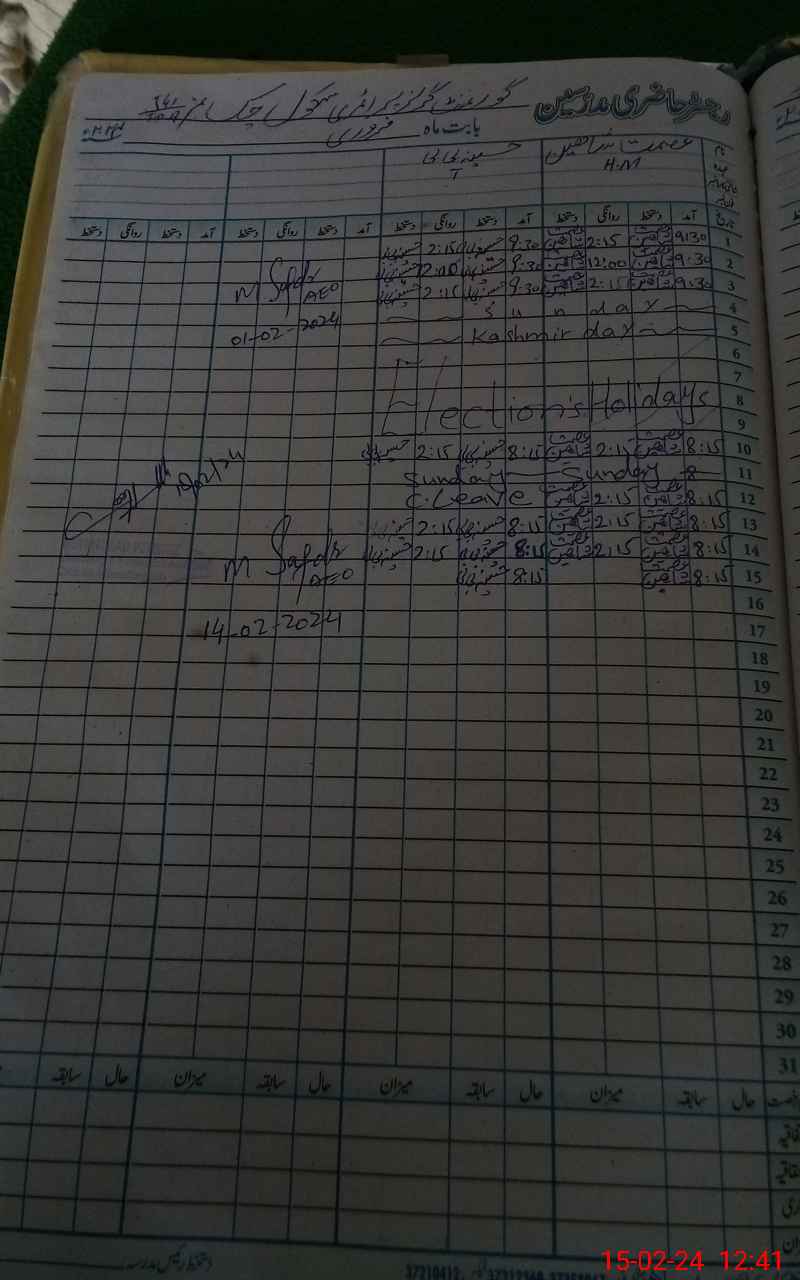 رجسٹر حاضری مدرسین گورنمنٹ گرلز پرائمری سکول چک نمبر
بابت ماہ فروری
نام عصمت شاہین حسینہ بی بی
عہدہ H.M T
تاریخ آمد دستخط روانگی دستخط آمد دستخط روانگی دستخط آمد دستخط روانگی دستخط آمد دستخط روانگی دستخط
1 9:30 عصمت شاہین 2:15 عصمت شاہین 9:30 2:15
2 9:30 عصمت شاہین 12:00 عصمت شاہین 9:30 12:00
3 9:30 عصمت شاہین 2:15 عصمت شاہین 9:30 2:15
M Safdr
AEO
4 Sunday
01-02-2024
5 Kashmir day
6
7
8 Election's Holidays
9
10 8:15 عصمت شاہین 2:15 عصمت شاہین 8:15 2:15
11 Sunday Sunday
12 8:15 عصمت شاہین 2:15 عصمت شاہین C.Leave
13 8:15 عصمت شاہین 2:15 عصمت شاہین 8:15 2:15
14 8:15 عصمت شاہین 2:15 عصمت شاہین 8:15 2:15
15 8:15 عصمت شاہین 8:15
M Safdr
AEO
16
17
14-02-2024
18
19
20
21
22
23
24
25
26
27
28
29
30
31
حال سابقہ میزان حال سابقہ میزان حال سابقہ میزان حال سابقہ
15-02-24 12:41